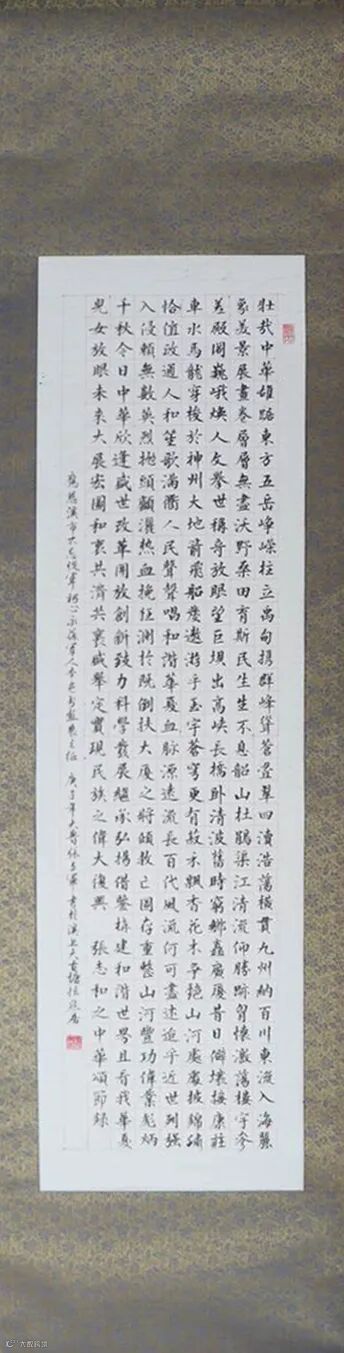 壮哉中華雄踞東方五岳峥嶸柱立禹甸携群峰聳蒼疊翠四瀆浩蕩横貫九州納百川東流入海麗
象美景展畫卷層層無盡沃野桑田育斯民生生不息韶山杜鵑渠江清流仰勝跡胸懷激蕩樓宇參
差殿閣巍峨焕人文舉世稱奇放眼望巨壩出高峡長橋卧清波舊時窮鄉矗廣厦昔日僻壤接康莊
車水馬龍穿梭於神州大地箭飛船發遨游乎玉宇蒼穹更有菽禾飄香花木争艳山河處處披錦綉
恰值政通人和笙歌满衢人民聲聲唱和谐華夏血脉源遠流長百代風流何可盡述迨乎近世列强
入侵賴無數英烈抛頭顱灑热血挽狂瀾於既倒扶大厦之將傾救亡圖存重整山河豐功偉業彪炳
千秋今日中華欣逢盛世改革開放創新致力科學發展繼承弘揚借鑒構建和谐世界且看我華夏
兒女放眼未來大展宏圖和衷共濟共襄盛舉定實現民族之偉大復興 張志和之中華頌節録
應慈溪市 庚子年